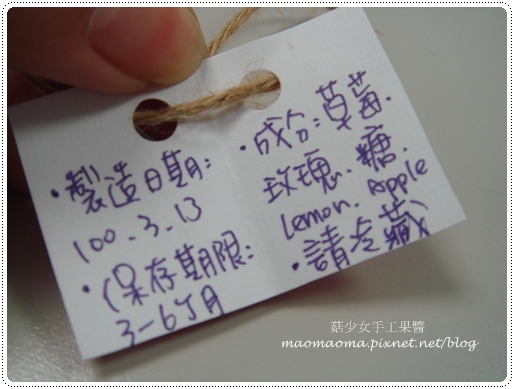 •製造日期:
100.3.13
•保存期限:
3-6个月
•成分:草莓.
玫瑰.糖.
Lemon.Apple
•請冷藏
菇少女手工果醬
maomaoma.pixnet.net/blog